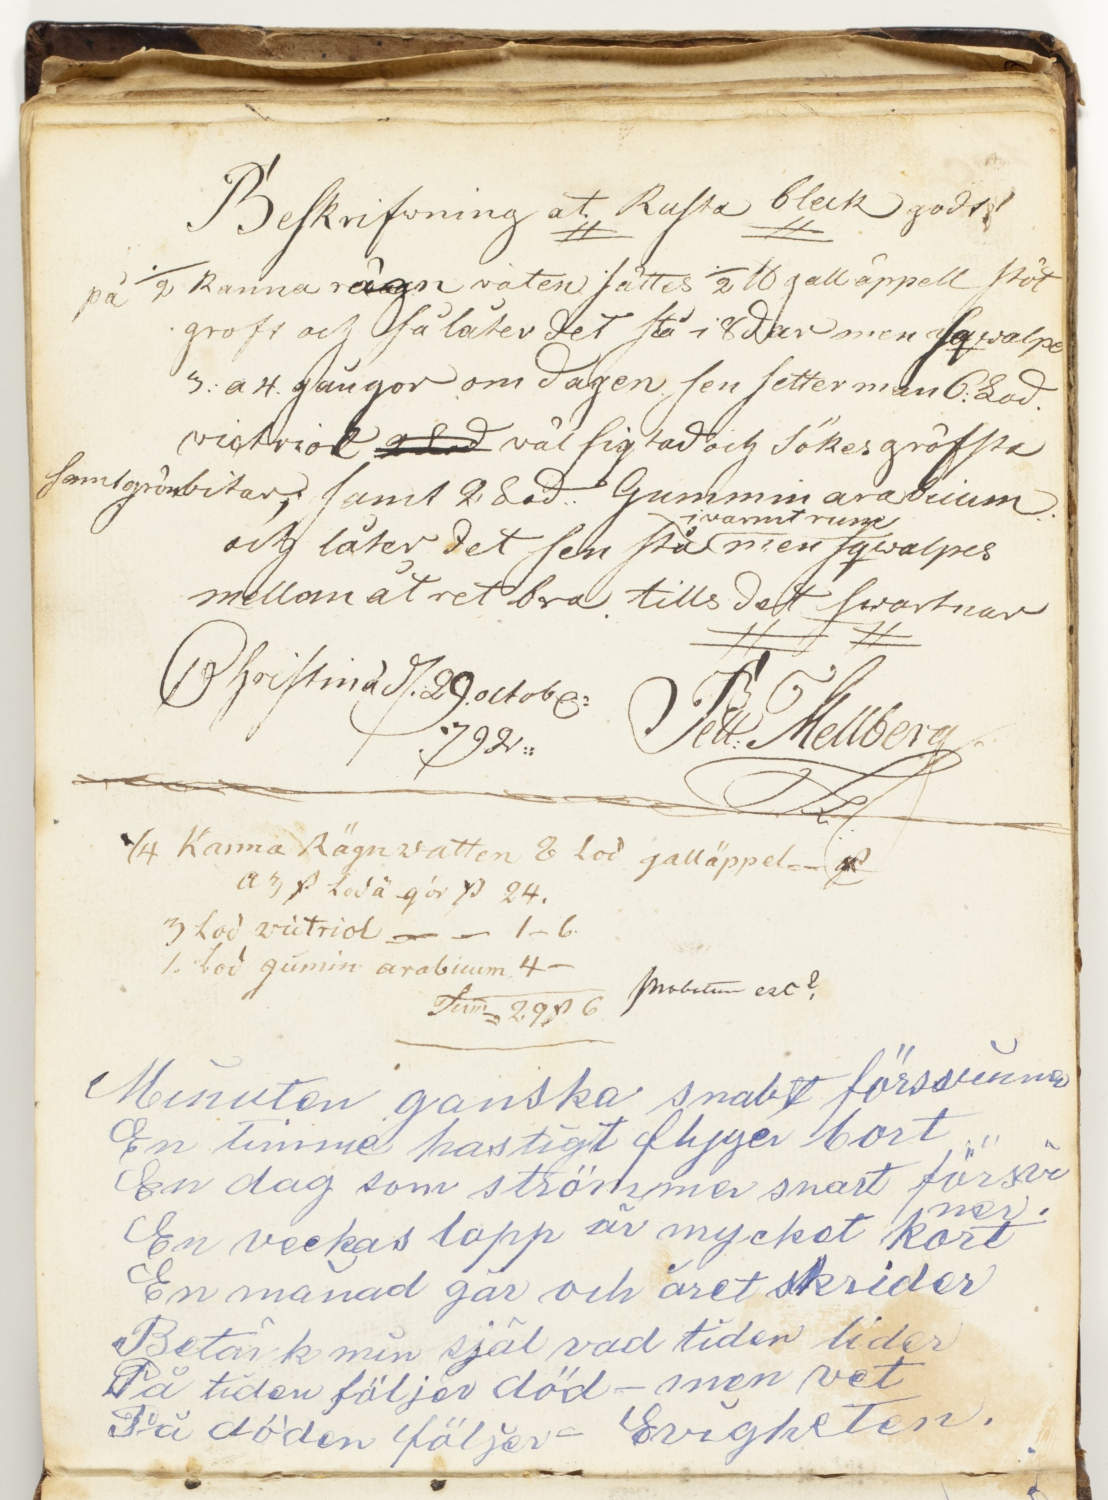 Beskrifwning at Rusta bleck gods
på 1/2 Kanna rägn vaten sättes 1/2 ℔ galläppell stöt
groft och så låter det stå i 8 dar men sqwalpe
3: a 4. gångor om dagen sen setter man 6: Lod.
victriol väl sigtad och sökes gröfsta
samt grön bitar; samt 2 Lod. Gummin arabicum.
i varmt rum
och låter det sen stå men sqwalpes
mellan åt ret bra tills det swartnar
Christina d. 29 octob:
792::
Pett: Mellberg
1/4 Kanna Rägnvatten 8 Lod galläppel
a 3 ß Lod ä gör ß 24.
3 Lod victriol — — 1 – 6
1. Lod gumin arabicum 4 –
Sum 29 ß 6
probatum est?
Minuten ganska snabt försvinna
En timme hastigt flyger bort
En dag som strömmer snart försvi
ner.
En veckas lopp är mycket kort
En månad går och året skrider
Betänk min själ vad tiden lider
På tiden följer död – men vet
På döden följer – Evigheten.